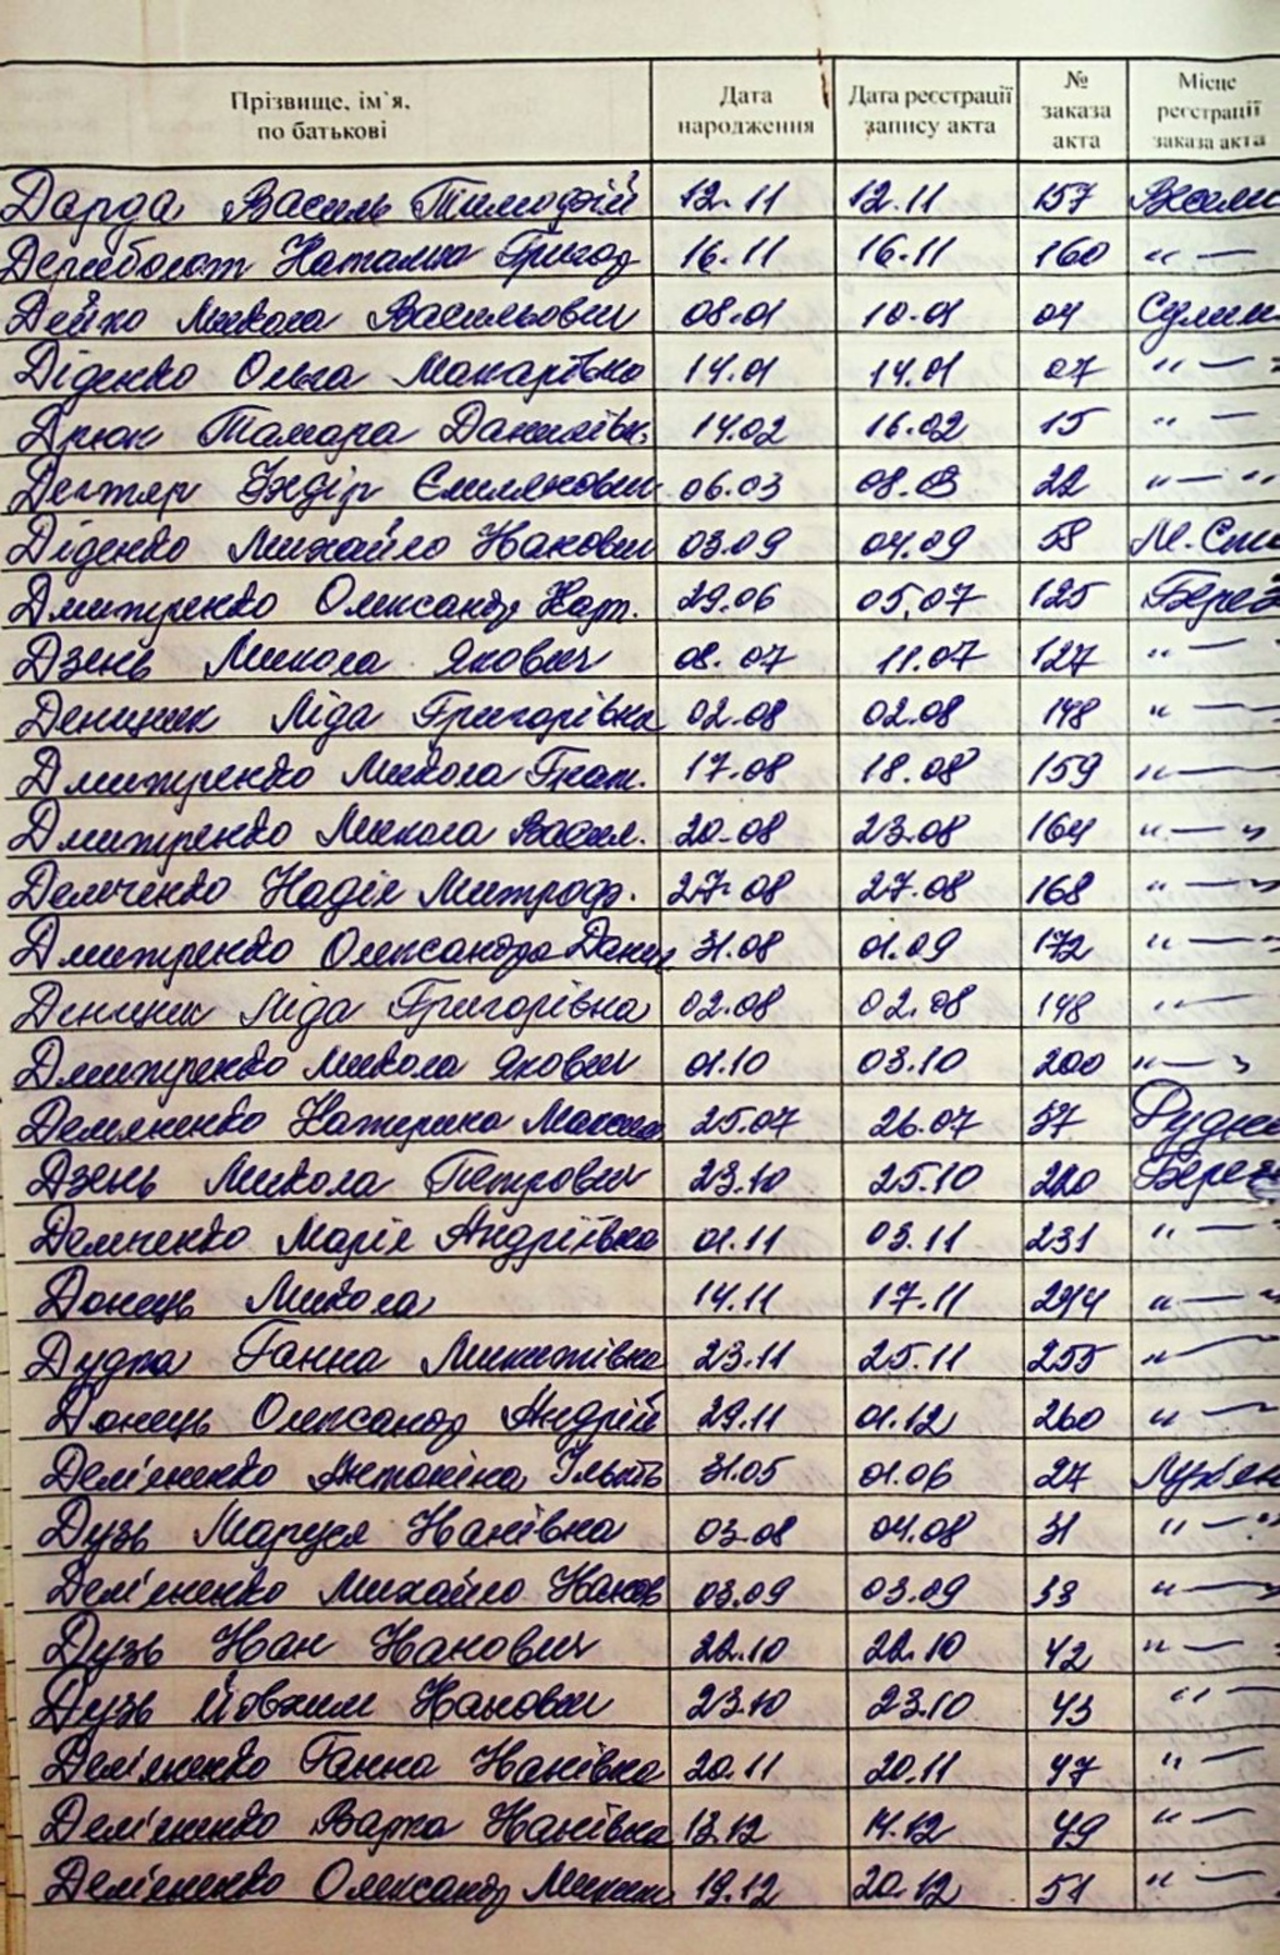 Прізвище, ім`я, по батькові Дата народження Дата реєстрації запису акта № заказа акта Місце реєстрації заказа акта
Дарда Василь Тимофій 12.11 12.11 157
Дериболот Наталія Григор 16.11 16.11 160 " —
Дейко Микола Васильович 08.01 10.01 04 Сулим
Діденко Ольга Макарівна 14.01 14.01 07 " — "
Дрюк Тамара Данилівн. 14.02 16.02 15 " —
Дегтяр Омелянович 06.03 08.03 22 " — "
Діденко Михайло Іванович 03.09 04.09 58 М.
Дмитренко Олександр 29.06 05.07 125 Берез
Дзень Микола Якович 08.07 11.07 127 " —
Денищик Ліда Григорівна 02.08 02.08 148 " —
Дмитренко Микола Гнат. 17.08 18.08 159 " —
Дмитренко Микола Васил. 20.08 23.08 164 " — "
Демченко Надія Митроф. 27.08 27.08 168 " — "
Дмитренко Олександра Данил 31.08 01.09 172 " — "
Денищик Ліда Григорівна 02.08 02.08 148 " —
Дмитренко Микола Якович 01.10 03.10 200 " — "
Демяненко Катерина Максим 25.07 26.07 37 Рудн
Дзень Микола Петрович 23.10 25.10 220 Берез
Демченко Марія Андріївна 01.11 03.11 231 " —
Донець Микола 14.11 17.11 244 " — "
Дудка Ганна Микитівна 23.11 25.11 255 " —
Донець Олександр Андрій 29.11 01.12 260 " —
Дем'яненко Антоніна 31.05 01.06 27
Дузь Маруся Іванівна 03.08 04.08 31 " — "
Дем'яненко Михайло Іванов 03.09 03.09 33 " —
Дузь Іван Іванович 22.10 22.10 42 " —
Дузь Йовхим Іванович 23.10 23.10 43 " —
Дем'яненко Ганна Іванівна 20.11 20.11 47 " —
Дем'яненко Варка Іванівна 13.12 14.12 49 " —
Дем'яненко Олександр 19.12 20.12 51 " —